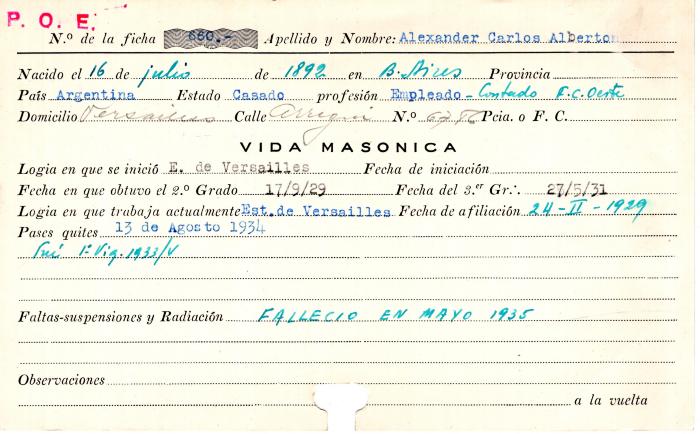 P. O. E.
N.º de la ficha 660.- Apellido y Nombre: Alexander Carlos Alberto
Nacido el 16 de julio de 1892 en B. Aires Provincia
País Argentina Estado Casado profesión Empleado - Contado F.C. Oeste
Domicilio Versailles Calle N.º Pcia. o F. C.
VIDA MASONICA
Logia en que se inició E. de Versailles Fecha de iniciación
Fecha en que obtuvo el 2.º Grado 17/9/29 Fecha del 3.er Gr∴ 27/5/31
Logia en que trabaja actualmente Est. de Versailles Fecha de afiliación 24-II-1929
Pases quites 13 de Agosto 1934
Fué 1º Vig. 1933/V
Faltas-suspensiones y Radiación FALLECIO EN MAYO 1935
Observaciones
a la vuelta